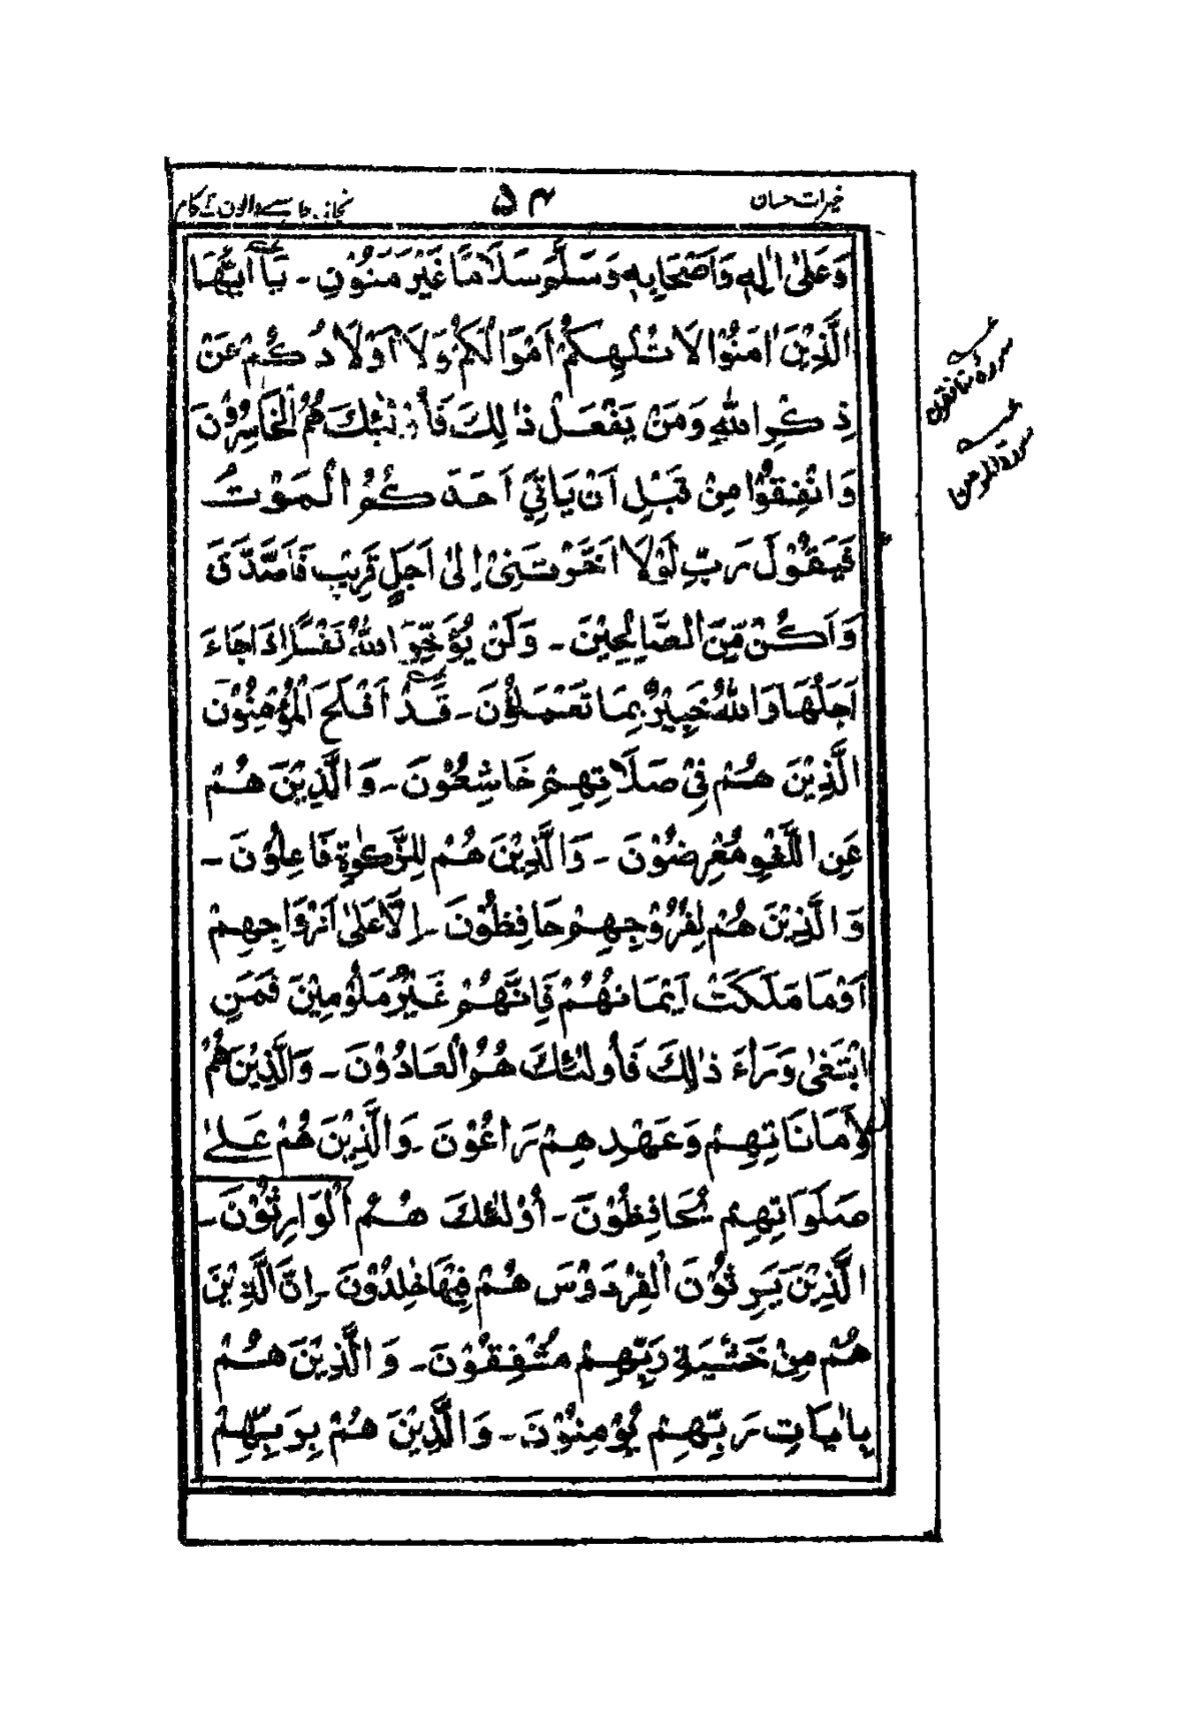 خیرات حسان
۵۴
والون کے کام
وَعَلىٰ اٰلِهٖ وَاَصْحَابِهٖ وَسَلَّمَ سَلَامًا غَيْرَ مَمْنُوْنٍ - يَآ اَيُّهَا
الَّذِيْنَ اٰمَنُوْا لَا تُلْهِكُمْ اَمْوَالُكُمْ وَلَا اَوْلَادُكُمْ عَنْ
ذِكْرِ اللّٰهِ وَمَنْ يَفْعَلْ ذٰلِكَ فَأُولٰئِكَ هُمُ الْخَاسِرُوْنَ
وَانْفِقُوْا مِنْ قَبْلِ اَنْ يَاتِيَ اَحَدَكُمُ الْمَوْتُ
فَيَقُوْلَ رَبِّ لَوْلَا اَخَّرْتَنِيْ اِلىٰ اَجَلٍ قَرِيْبٍ فَاَصَّدَّقَ
وَاَكُنْ مِّنَ الصَّالِحِيْنَ - وَلَنْ يُؤَخِّرَ اللّٰهُ نَفْسًا اِذَا جَاءَ
اَجَلُهَا وَاللّٰهُ خَبِيْرٌ بِمَا تَعْمَلُوْنَ - قَدْ اَفْلَحَ الْمُؤْمِنُوْنَ
الَّذِيْنَ هُمْ فِيْ صَلَاتِهِمْ خَاشِعُوْنَ - وَالَّذِيْنَ هُمْ
عَنِ اللَّغْوِ مُعْرِضُوْنَ - وَالَّذِيْنَ هُمْ لِلزَّكٰوةِ فَاعِلُوْنَ -
وَالَّذِيْنَ هُمْ لِفُرُوْجِهِمْ حَافِظُوْنَ - اِلَّا عَلىٰ اَزْوَاجِهِمْ
اَوْمَا مَلَكَتْ اَيْمَانُهُمْ فَاِنَّهُمْ غَيْرُ مَلُوْمِيْنَ فَمَنِ
ابْتَغىٰ وَرَاءَ ذٰلِكَ فَأُولٰئِكَ هُمُ الْعَادُوْنَ - وَالَّذِيْنَ هُمْ
لِاَمَانَاتِهِمْ وَعَهْدِهِمْ رَاعُوْنَ - وَالَّذِيْنَ هُمْ عَلىٰ
صَلَوَاتِهِمْ يُحَافِظُوْنَ - اُوْلٰئِكَ هُمُ الْوَارِثُوْنَ -
الَّذِيْنَ يَرِثُوْنَ الْفِرْدَوْسَ هُمْ فِيْهَا خٰلِدُوْنَ - اِنَّ الَّذِيْنَ
هُمْ مِنْ خَشْيَةِ رَبِّهِمْ مُشْفِقُوْنَ - وَالَّذِيْنَ هُمْ
بِاٰيَاتِ رَبِّهِمْ يُؤْمِنُوْنَ - وَالَّذِيْنَ هُمْ بِرَبِّهِمْ
سورۂ منافقون
سورۃ المومن